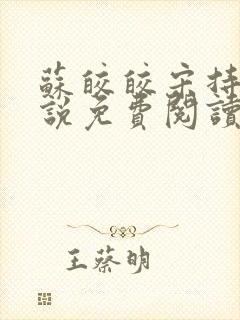 蘇皎皎宋持
說免費閱讀
王蔡明